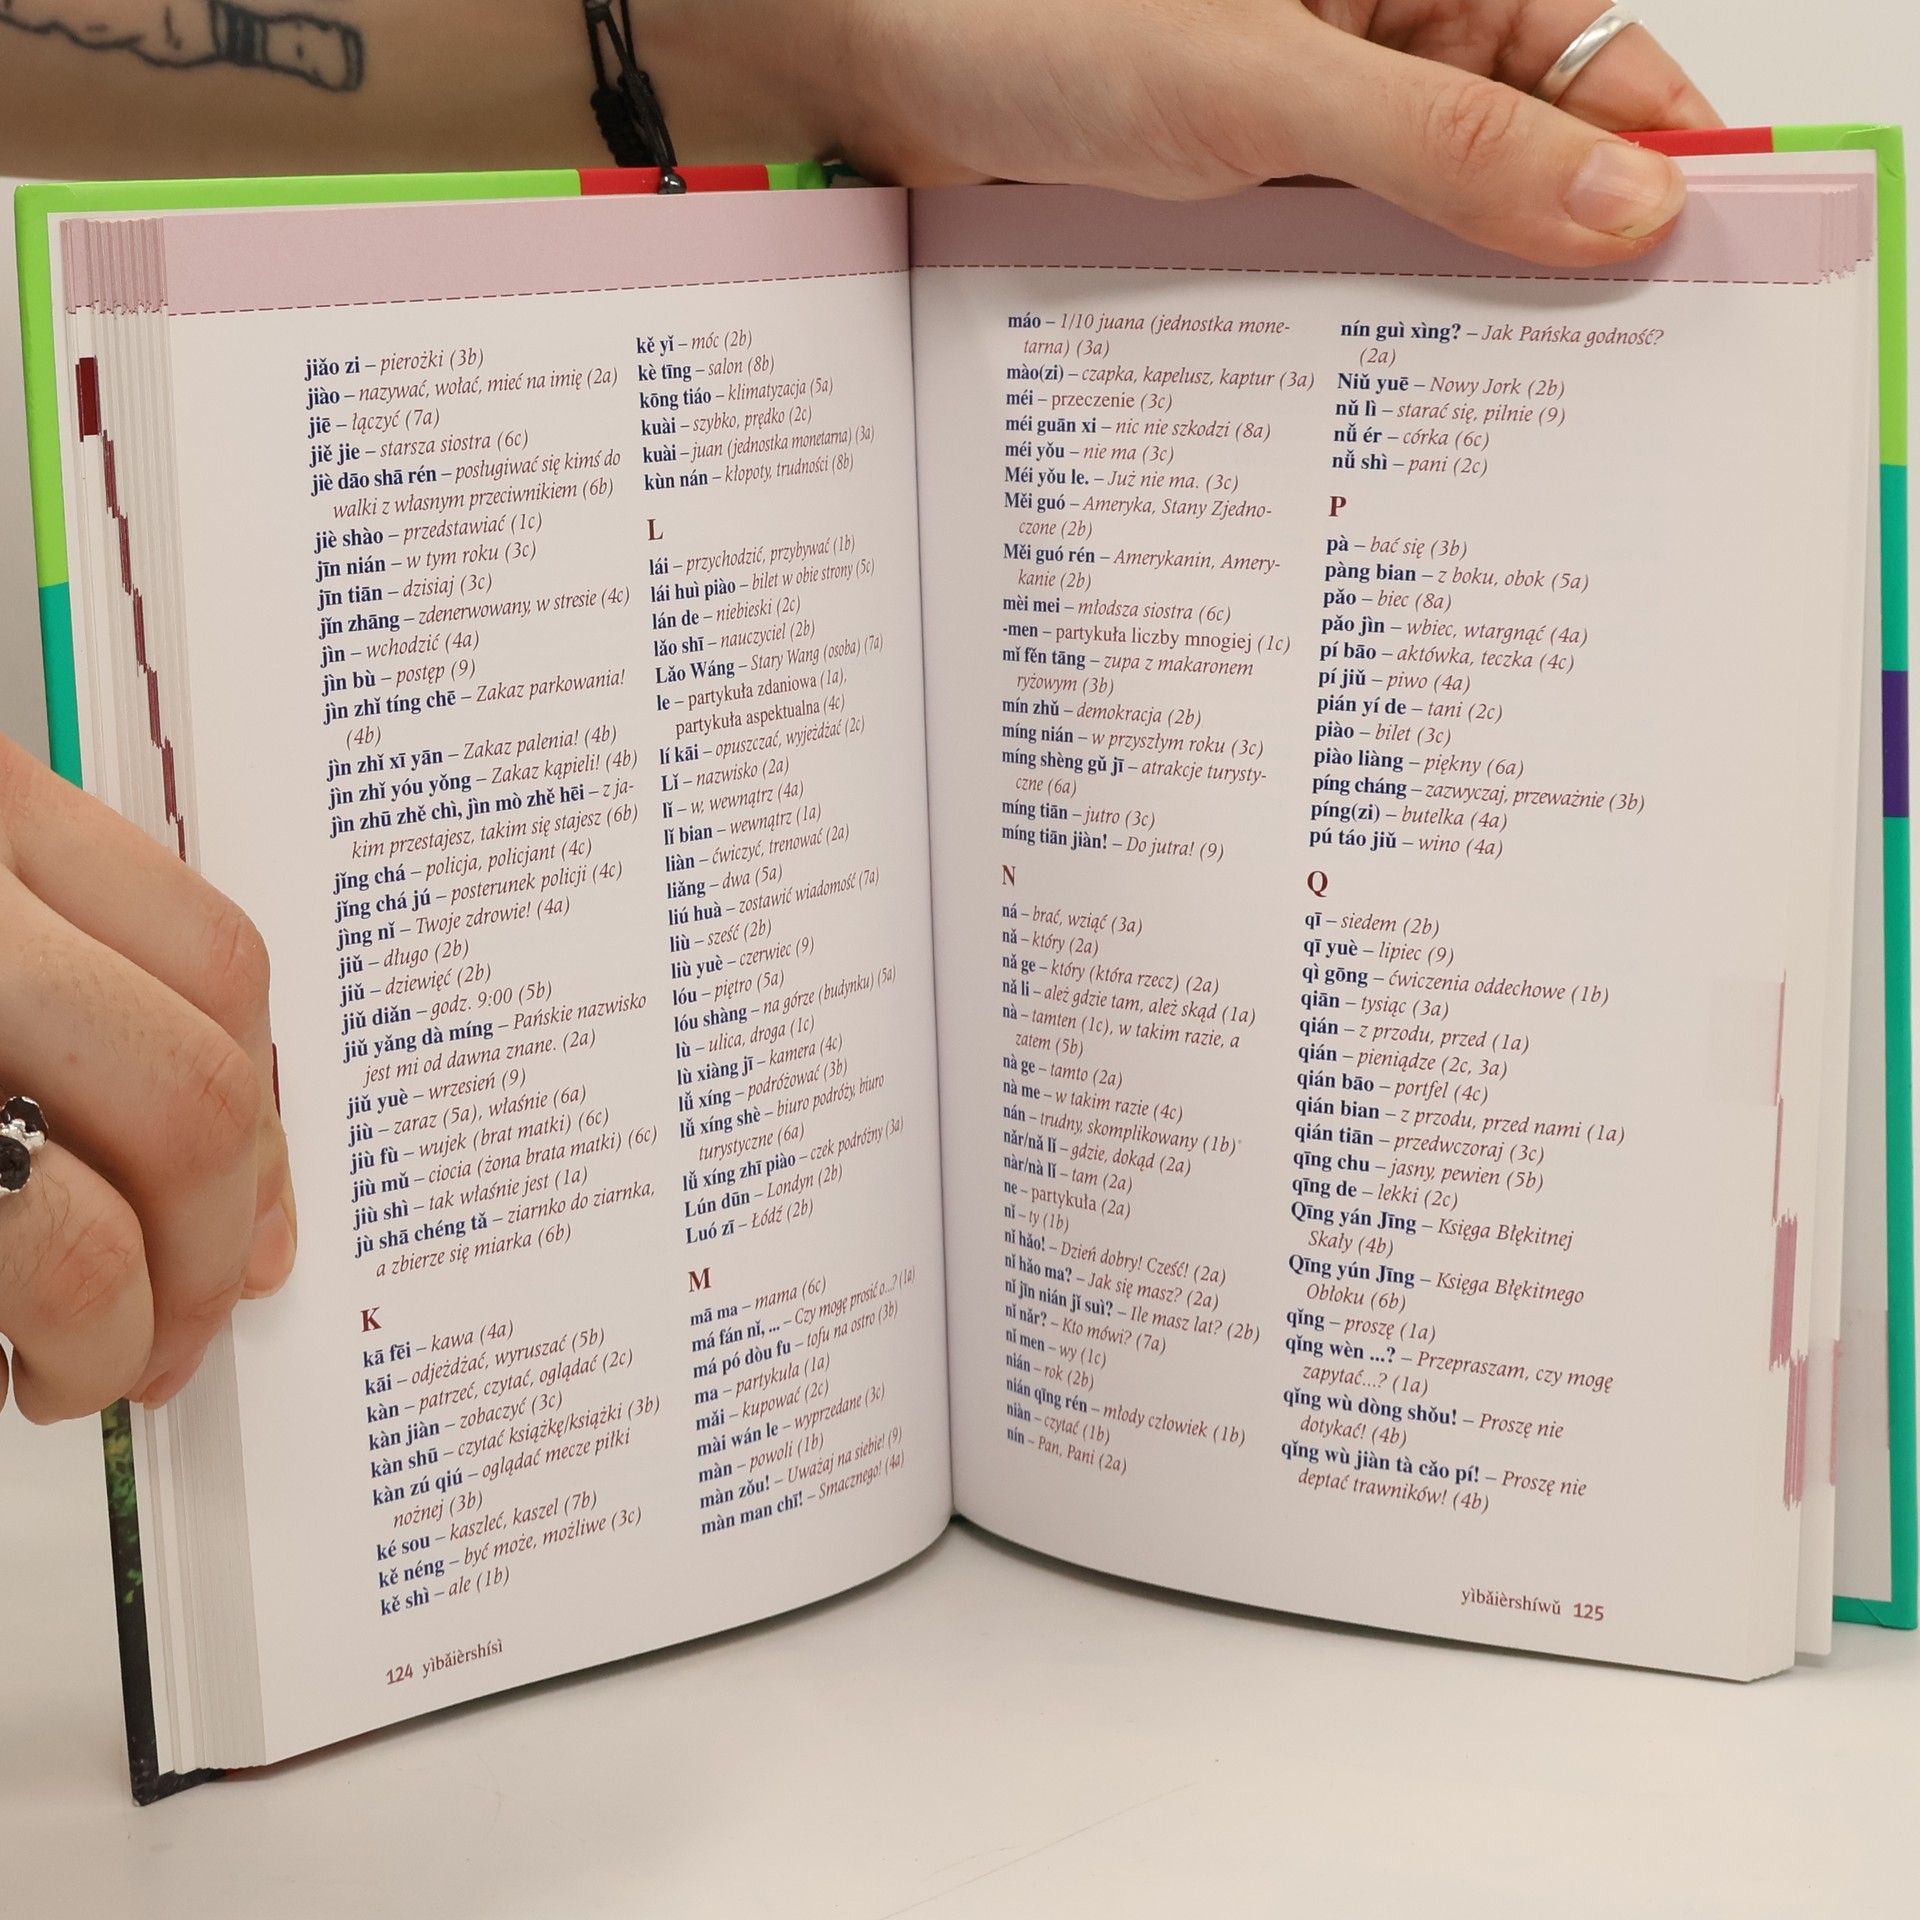 jiǎo zi – pierożki (3b)
jiào – nazywać, wołać, mieć na imię (2a)
jiē – łączyć (7a)
jiě jie – starsza siostra (6c)
jiè dāo shā rén – posługiwać się kimś do
walki z własnym przeciwnikiem (6b)
jiè shào – przedstawiać (1c)
jīn nián – w tym roku (3c)
jīn tiān – dzisiaj (3c)
jǐn zhāng – zdenerwowany, w stresie (4c)
jìn – wchodzić (4a)
jìn bù – postęp (9)
jìn zhǐ tíng chē – Zakaz parkowania!
(4b)
jìn zhǐ xī yān – Zakaz palenia! (4b)
jìn zhǐ yóu yǒng – Zakaz kąpieli! (4b)
jìn zhū zhě chì, jìn mò zhě hēi – z ja-
kim przestajesz, takim się stajesz (6b)
jǐng chá – policja, policjant (4c)
jǐng chá jú – posterunek policji (4c)
jìng nǐ – Twoje zdrowie! (4a)
jiǔ – długo (2b)
jiǔ – dziewięć (2b)
jiǔ diǎn – godz. 9:00 (5b)
jiǔ yǎng dà míng – Pańskie nazwisko
jest mi od dawna znane. (2a)
jiǔ yuè – wrzesień (9)
jiù – zaraz (5a), właśnie (6a)
jiù fù – wujek (brat matki) (6c)
jiù mǔ – ciocia (żona brata matki) (6c)
jiù shì – tak właśnie jest (1a)
jù shā chéng tǎ – ziarnko do ziarnka,
a zbierze się miarka (6b)
K
kā fēi – kawa (4a)
kāi – odjeżdżać, wyruszać (5b)
kàn – patrzeć, czytać, oglądać (2c)
kàn jiàn – zobaczyć (3c)
kàn shū – czytać książkę/książki (3b)
kàn zú qiú – oglądać mecze piłki
nożnej (3b)
ké sou – kaszleć, kaszel (7b)
kě néng – być może, możliwe (3c)
kě shì – ale (1b)
124 yìbǎièrshísì
kě yǐ – móc (2b)
kè tīng – salon (8b)
kōng tiáo – klimatyzacja (5a)
kuài – szybko, prędko (2c)
kuài – juan (jednostka monetarna) (3a)
kùn nán – kłopoty, trudności (8b)
L
lái – przychodzić, przybywać (1b)
lái huì piào – bilet w obie strony (5c)
lán de – niebieski (2c)
lǎo shī – nauczyciel (2b)
Lǎo Wáng – Stary Wang (osoba) (7a)
le – partykuła zdaniowa (1a),
partykuła aspektualna (4c)
lí kāi – opuszczać, wyjeżdżać (2c)
Lǐ – nazwisko (2a)
lǐ – w, wewnątrz (4a)
lǐ bian – wewnątrz (1a)
liàn – ćwiczyć, trenować (2a)
liǎng – dwa (5a)
liú huà – zostawić wiadomość (7a)
liù – sześć (2b)
liù yuè – czerwiec (9)
lóu – piętro (5a)
lóu shàng – na górze (budynku) (5a)
lù – ulica, droga (1c)
lù xiàng jī – kamera (4c)
lǚ xíng – podróżować (3b)
lǚ xíng shè – biuro podróży, biuro
turystyczne (6a)
lǚ xíng zhī piào – czek podróżny (3a)
Lún dūn – Londyn (2b)
Luó zī – Łódź (2b)
M
mā ma – mama (6c)
má fán nǐ, ... – Czy mogę prosić o...? (1a)
má pó dòu fu – tofu na ostro (3b)
ma – partykuła (1a)
mǎi – kupować (2c)
mài wán le – wyprzedane (3c)
màn – powoli (1b)
màn zǒu! – Uważaj na siebie! (9)
màn man chī! – Smacznego! (4a)
máo – 1/10 juana (jednostka mone-
tarna) (3a)
mào(zi) – czapka, kapelusz, kaptur (3a)
méi – przeczenie (3c)
méi guān xi – nic nie szkodzi (8a)
méi yǒu – nie ma (3c)
Méi yǒu le. – Już nie ma. (3c)
Měi guó – Ameryka, Stany Zjedno-
czone (2b)
Měi guó rén – Amerykanin, Amery-
kanie (2b)
mèi mei – młodsza siostra (6c)
-men – partykuła liczby mnogiej (1c)
mǐ fěn tāng – zupa z makaronem
ryżowym (3b)
mín zhǔ – demokracja (2b)
míng nián – w przyszłym roku (3c)
míng shèng gǔ jī – atrakcje turysty-
czne (6a)
míng tiān – jutro (3c)
míng tiān jiàn! – Do jutra! (9)
N
ná – brać, wziąć (3a)
nǎ – który (2a)
nǎ ge – który (która rzecz) (2a)
nǎ li – ależ gdzie tam, ależ skąd (1a)
nà – tamten (1c), w takim razie, a
zatem (5b)
nà ge – tamto (2a)
nà me – w takim razie (4c)
nán – trudny, skomplikowany (1b)
nǎr/nǎ lǐ – gdzie, dokąd (2a)
nàr/nà lǐ – tam (2a)
ne – partykuła (2a)
nǐ – ty (1b)
nǐ hǎo! – Dzień dobry! Cześć! (2a)
nǐ hǎo ma? – Jak się masz? (2a)
nǐ jīn nián jǐ suì? – Ile masz lat? (2b)
nǐ nǎr? – Kto mówi? (7a)
nǐ men – wy (1c)
nián – rok (2b)
nián qīng rén – młody człowiek (1b)
niàn – czytać (1b)
nín – Pan, Pani (2a)
nín guì xìng? – Jak Pańska godność?
(2a)
Niǔ yuē – Nowy Jork (2b)
nǔ lì – starać się, pilnie (9)
nǚ ér – córka (6c)
nǚ shì – pani (2c)
P
pà – bać się (3b)
pàng bian – z boku, obok (5a)
pǎo – biec (8a)
pǎo jìn – wbiec, wtargnąć (4a)
pí bāo – aktówka, teczka (4c)
pí jiǔ – piwo (4a)
pián yí de – tani (2c)
piào – bilet (3c)
piào liàng – piękny (6a)
píng cháng – zazwyczaj, przeważnie (3b)
píng(zi) – butelka (4a)
pú táo jiǔ – wino (4a)
Q
qī – siedem (2b)
qī yuè – lipiec (9)
qì gōng – ćwiczenia oddechowe (1b)
qiān – tysiąc (3a)
qián – z przodu, przed (1a)
qián – pieniądze (2c, 3a)
qián bāo – portfel (4c)
qián bian – z przodu, przed nami (1a)
qián tiān – przedwczoraj (3c)
qīng chu – jasny, pewien (5b)
qīng de – lekki (2c)
Qīng yán Jīng – Księga Błękitnej
Skały (4b)
Qīng yún Jīng – Księga Błękitnego
Obłoku (6b)
qǐng – proszę (1a)
qǐng wèn ...? – Przepraszam, czy mogę
zapytać...? (1a)
qǐng wù dòng shǒu! – Proszę nie
dotykać! (4b)
qǐng wù jiàn tà cǎo pí! – Proszę nie
deptać trawników! (4b)
yìbǎièrshíwǔ 125